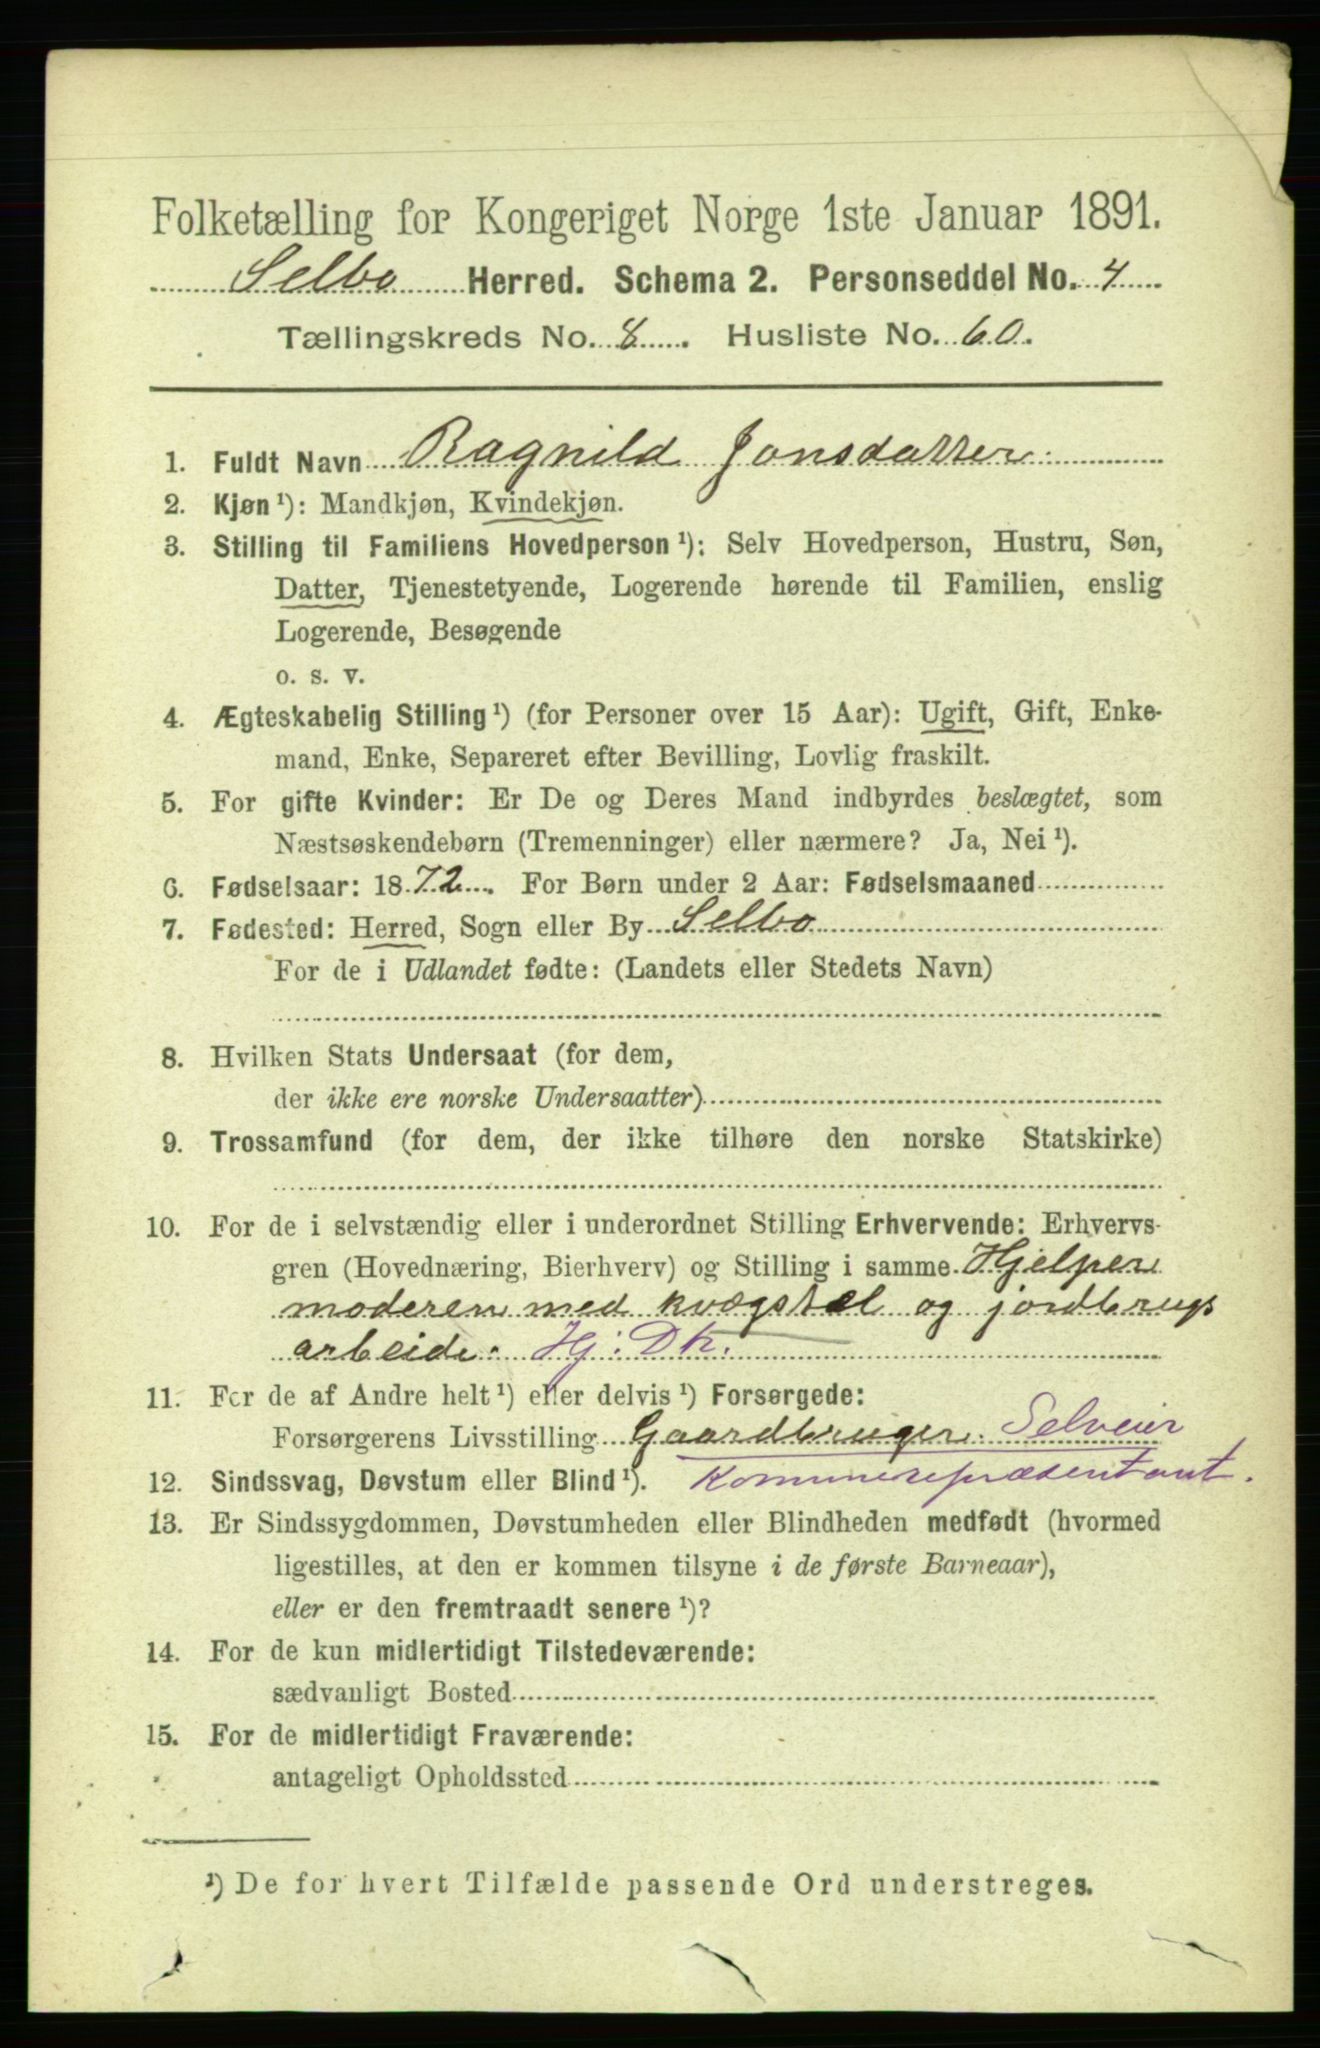 Folketælling for Kongeriget Norge 1ste Januar 1891.
Selbo Herred. Schema 2. Personseddel No. 4
Tællingskreds No. 8. Husliste No. 60.
1. Fuldt Navn Ragnild Jonsdatter.
2. Kjøn ¹): Mandkjøn, Kvindekjøn.
3. Stilling til Familiens Hovedperson ¹): Selv Hovedperson, Hustru, Søn,
Datter, Tjenestetyende, Logerende hørende til Familien, enslig
Logerende, Besøgende
o. s. v.
4. Ægteskabelig Stilling ¹) (for Personer over 15 Aar): Ugift, Gift, Enke-
mand, Enke, Separeret efter Bevilling, Lovlig fraskilt.
5. For gifte Kvinder: Er De og Deres Mand indbyrdes beslægtet, som
Næstsøskendebørn (Tremenninger) eller nærmere? Ja, Nei ¹).
6. Fødselsaar: 1872. For Børn under 2 Aar: Fødselsmaaned
7. Fødested: Herred, Sogn eller By Selbo
For de i Udlandet fødte: (Landets eller Stedets Navn)
8. Hvilken Stats Undersaat (for dem,
der ikke ere norske Undersaatter)
9. Trossamfund (for dem, der ikke tilhøre den norske Statskirke)
10. For de i selvstændig eller i underordnet Stilling Erhvervende: Erhvervs-
gren (Hovednæring, Bierhverv) og Stilling i samme. Hjelper
moderen med kvægstel og jordbrugs
arbeide. Hj: Dtr.
11. For de af Andre helt ¹) eller delvis ¹) Forsørgede:
Forsørgerens Livsstilling Gaardbruger. Selveier
12. Sindssvag, Døvstum eller Blind ¹). Kommuerepræsentant.
13. Er Sindssygdommen, Døvstumheden eller Blindheden medfødt (hvormed
ligestilles, at den er kommen tilsyne i de første Barneaar),
eller er den fremtraadt senere ¹)?
14. For de kun midlertidigt Tilstedeværende:
sædvanligt Bosted
15. For de midlertidigt Fraværende:
antageligt Opholdssted
¹) De for hvert Tilfælde passende Ord understreges.